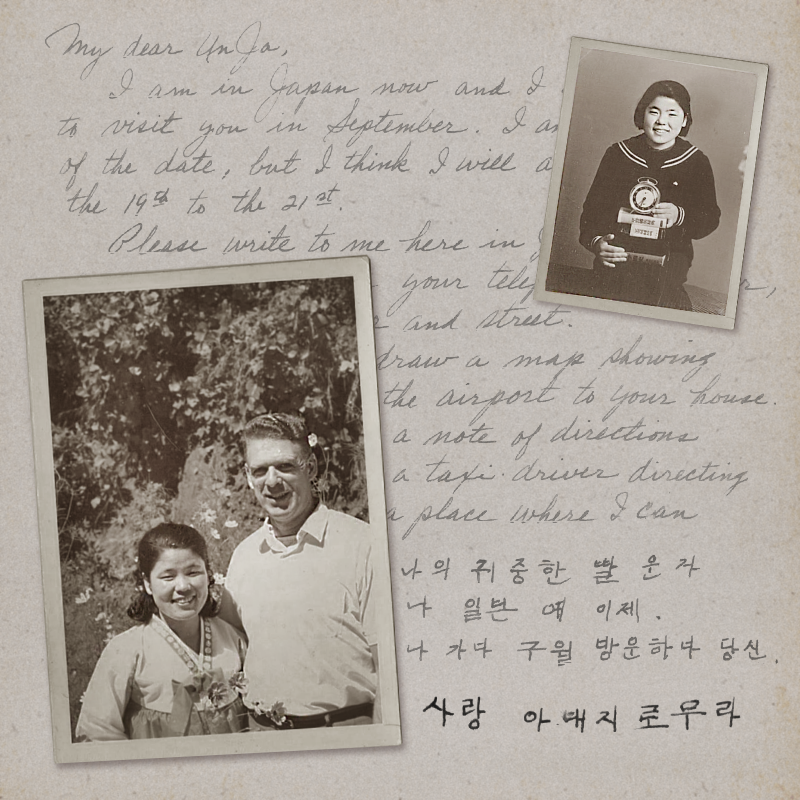 My dear Un Ja,
I am in Japan now and I
to visit you in September. I am
of the date, but I think I will a
the 19th to the 21st.
Please write to me here in J
your telep r,
and street.
draw a map showing
the airport to your house.
a note of directions
a taxi driver directing
a place where I can
나의 귀중한 딸 운자
나 일본 에 이제.
나 가다 구월 방문하다 당신.
사랑 아대지 로무라